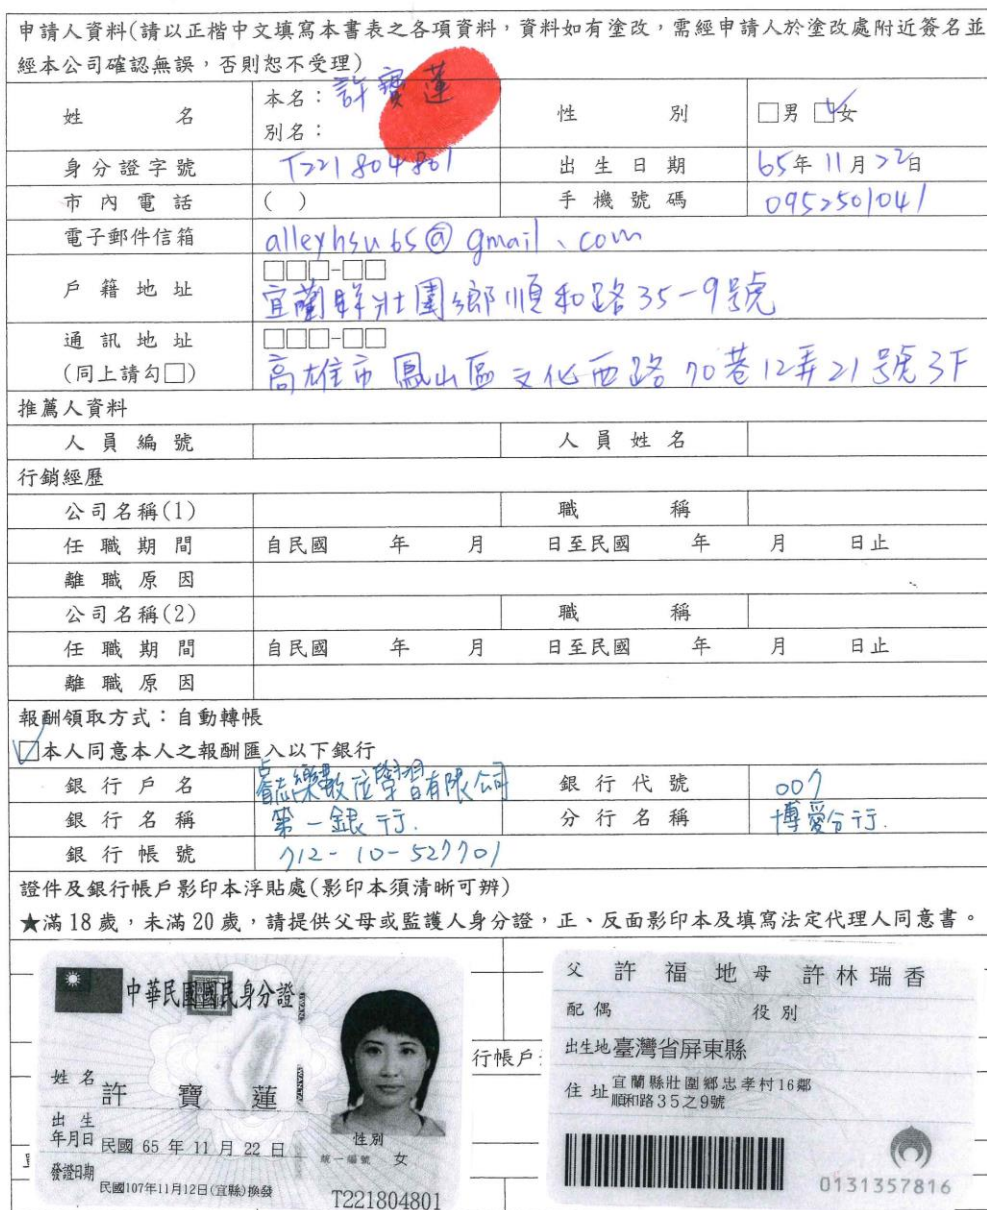 申請人資料(請以正楷中文填寫本書表之各項資料，資料如有塗改，需經申請人於塗改處附近簽名並
經本公司確認無誤，否則恕不受理)
姓 名 本名：許寶蓮 性 別 □男 ☑女
別名：
身分證字號 T221804801 出生日期 65年11月22日
市內電話 ( ) 手機號碼 0952501041
電子郵件信箱 alleyhsu65@gmail、com
戶籍地址 □□□-□□
宜蘭縣壯圍鄉順和路35-9號
通訊地址 □□□-□□
(同上請勾□) 高雄市鳳山區文化西路70巷12弄21號3F
推薦人資料
人員編號 人員姓名
行銷經歷
公司名稱(1) 職 稱
任職期間 自民國 年 月 日至民國 年 月 日止
離職原因
公司名稱(2) 職 稱
任職期間 自民國 年 月 日至民國 年 月 日止
離職原因
報酬領取方式：自動轉帳
☑本人同意本人之報酬匯入以下銀行
銀行戶名 樂數位學習有限公司 銀行代號 007
銀行名稱 第一銀行. 分行名稱 博愛分行.
銀行帳號 712-10-527701
證件及銀行帳戶影印本浮貼處(影印本須清晰可辨)
★滿18歲，未滿20歲，請提供父母或監護人身分證，正、反面影印本及填寫法定代理人同意書。
中華民國國民身分證
姓名 許寶蓮
出生年月日 民國 65 年 11 月 22 日
性別 女
統一編號 T221804801
發證日期 民國107年11月12日(宜縣)換發
行帳戶
父 許福地 母 許林瑞香
配偶 役別
出生地 臺灣省屏東縣
住址 宜蘭縣壯圍鄉忠孝村16鄰
順和路35之9號
0131357816